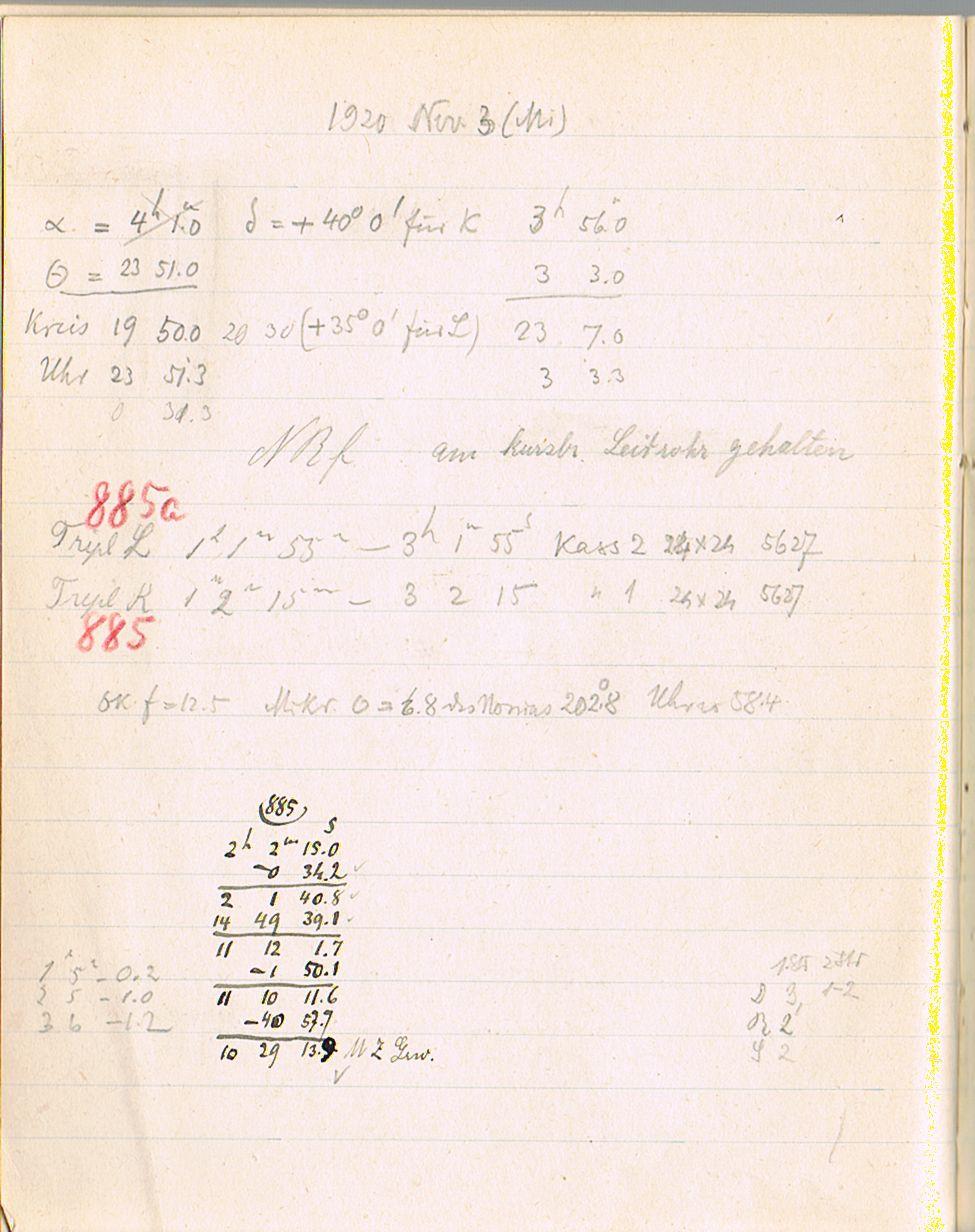 1920 Nov. 3 (Mi)
α = 4h 1m.0 δ = +40° 0' für K 3h 56m.0
Θ = 23 51.0 3 3.0
Kreis 19 50.0 20 30 (+35° 0' für L) 23 7.0
Uhr 23 51.3 3 3.3
0 31.3
NRf am kurzbr. Leitrohr gehalten
885a
Tripl L 1h 1m 55s — 3h 1m 55s Kass 2 24×24 5627
Tripl K 1h 2m 15s — 3 2 15 " 1 24×24 5627
885
OK f = 12.5 Mikr. 0 = 6.8 des Nonius 202°.8 Uhr 58.4
885
2h 2m 15s.0
-0 34.2
2 1 40.8
14 49 39.1
11 12 1.7
-1 50.1
1h 5m - 0.2
11 10 11.6
2 5 - 1.0
D 3, 1-2
-40 57.7
3 6 - 1.2
R 2
10 29 13.9 MZ Grw.
S 2